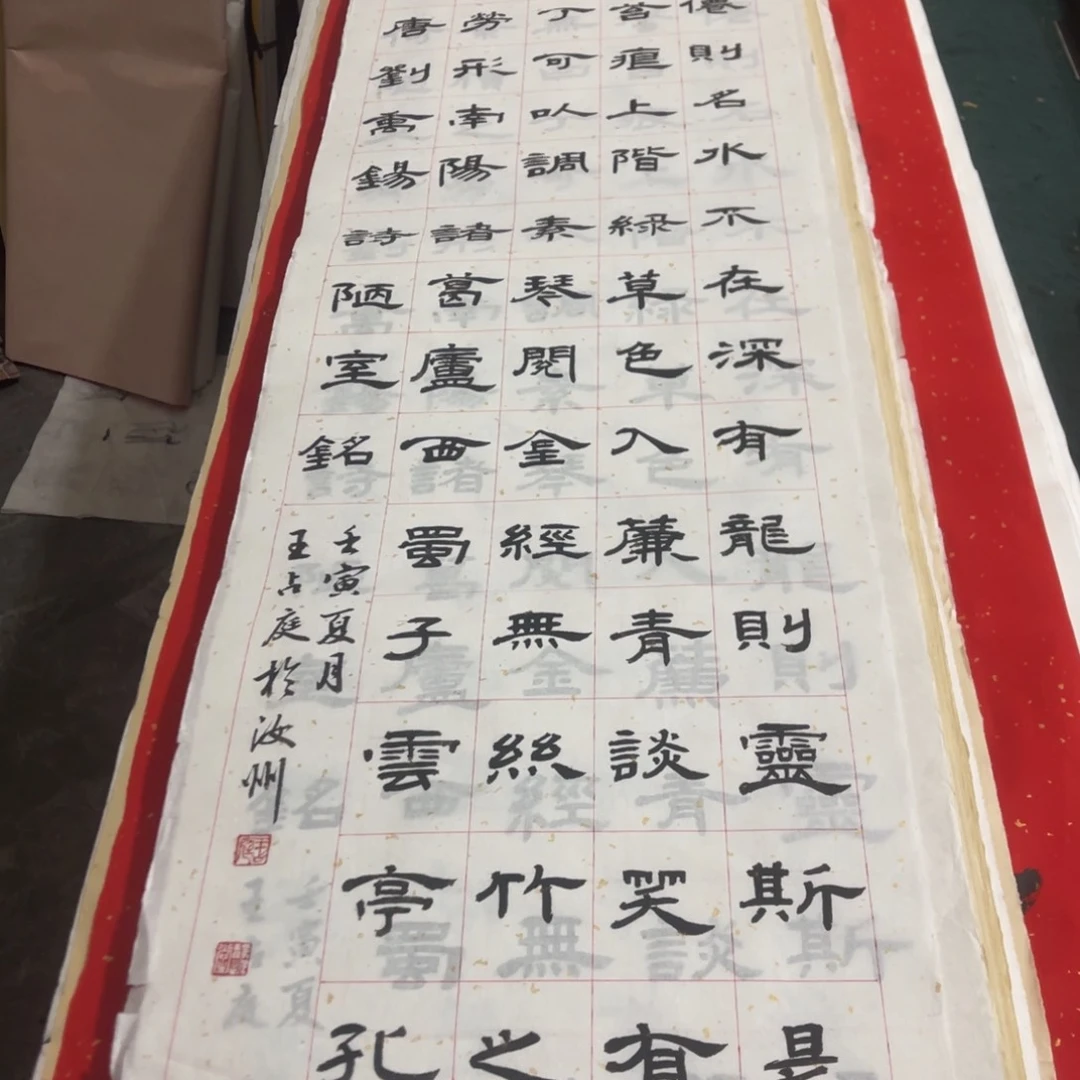 僊則名水不在深有龍則靈斯是
苔痕上階綠草色入簾青談笑有
丁可以調素琴閱金經無絲竹之
勞形南陽諸葛廬西蜀子雲亭孔
唐劉禹錫詩陋室銘
壬寅夏月
王占庭於汝州